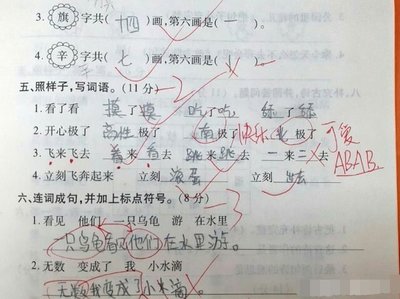 3.(旗)字共(十四)画,第六画是(一)。
4.(辛)字共(七)画,第六画是(丨)。
五、照样子,写词语。(11分) -2
1.看了看 摸了摸 吃了吃
2.开心极了 高性极了 南极了 快乐 北极了 可爱
3.飞来飞去 看来看去 跳来跳去 一来二去 ABAB
4.立刻飞奔起来 立刻滚蛋 立刻出去
六、连词成句,并加上标点符号。(8分) -3
1.看见 他们 一只乌龟 游 在水里
一只乌龟看见他们在水里游。
2.无数 变成了 我 小水滴
无数我变成了小水滴